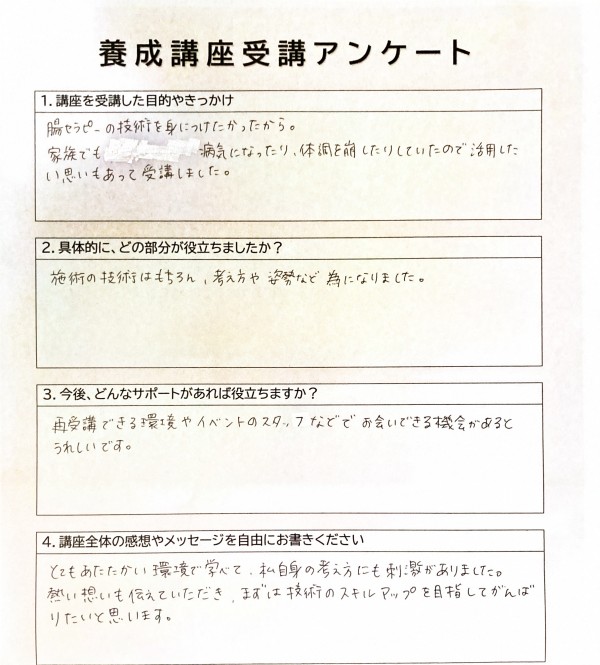 養成講座受講アンケート
1. 講座を受講した目的やきっかけ
腸セラピーの技術を身につけたかったから。
家族でも 病気になったり、体調を崩したりしていたので活用した
い思いもあって受講しました。
2. 具体的に、どの部分が役立ちましたか？
施術の技術はもちろん、考え方や姿勢など為になりました。
3. 今後、どんなサポートがあれば役立ちますか？
再受講できる環境やイベントのスタッフなどでお会いできる機会があると
うれしいです。
4. 講座全体の感想やメッセージを自由にお書きください
とてもあたたかい環境で学べて、私自身の考え方にも刺激がありました。
熱い想いも伝えていただき、まずは技術のスキルアップを目指してがんば
りたいと思います。